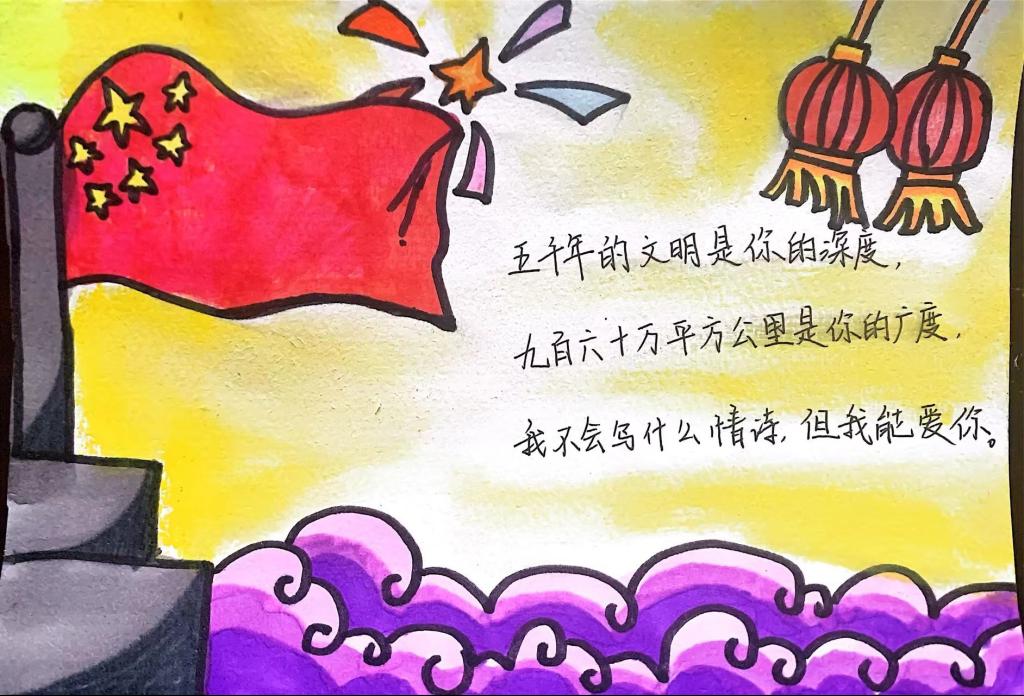 五千年的文明是你的深度,
九百六十万平方公里是你的广度.
我不会写什么情诗,但我能爱你。